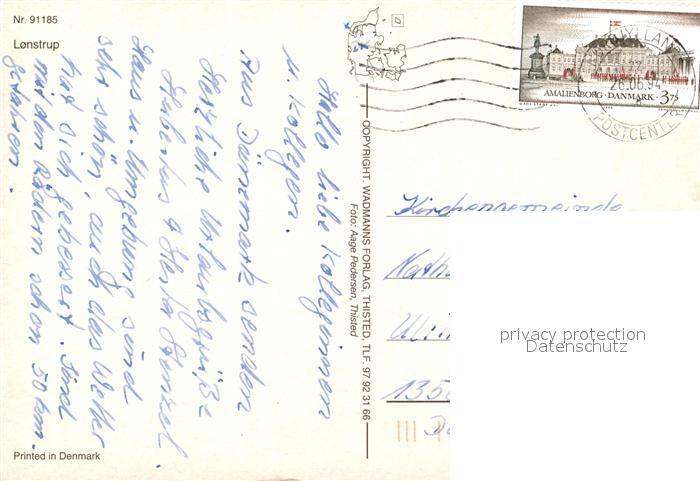 Nr. 91185
Lønstrup
Hallo liebe Kolleginnen
u. Kollegen.
Aus Dänemark senden
Herzliche Urlaubsgrüße
Hubertus + Herta
Haus u. Umgebung sind
sehr schön, auch das Wetter
hat sich gebessert. Sind
mit den Rädern schon 50 km
gefahren.
Printed in Denmark
COPYRIGHT: WADMANNS FORLAG, THISTED, TLF. 97 92 31 66
Foto: Aage Pedersen, Thisted
AMALIENBORG · DANMARK · 3,75
26.06.94
POSTCENTER
Kirchengemeinde
135
privacy protection
Datenschutz